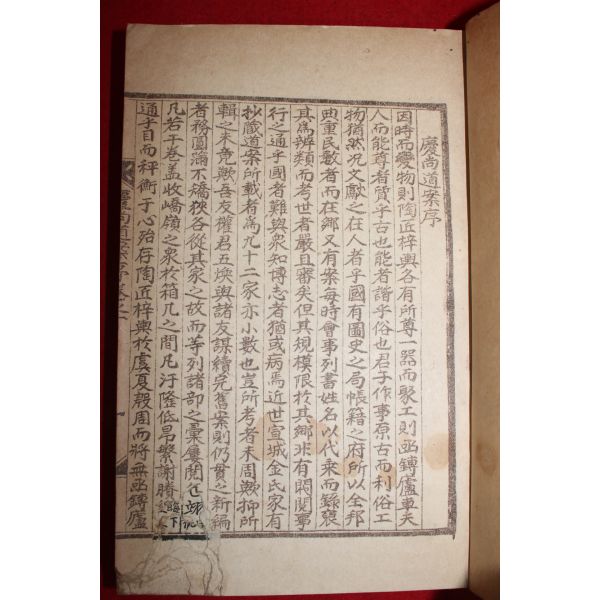 慶尚道案序
因時而變物則陶匠梓輿各有所尊一器而聚工則函鏄廬車夫
人而能尊者質乎古也能者諧乎俗也君子作事原古而利俗工
物猶然况文獻之在人者乎國有圖史之局帳籍之府所以全邦
典重民數者而在鄕又有案每時會事列書姓名以代来而錄裒
其爲辨類而考世者嚴且審矣但其規模限於其鄕非有閎閱事
行之通乎國者難與衆知博志者猶或病焉近世宣城金氏家有
抄藏道案所載者爲九十二家亦小數也豈所考者未周歟抑所
輯之未竟歟吾友權君五煥與諸友謀續完舊案則仍貫之新編
者務圓滿不矯狹各從其家之故而等列諸部之彙屢閱
凡若干卷盖收嶠嶺之衆於箱几之間凡汙隆低昻繁謝贃
通乎目而秤衡于心殆存陶匠梓輿於虞夏殷周而將無函鏄廬
慶尚道案序卷之一
臨下